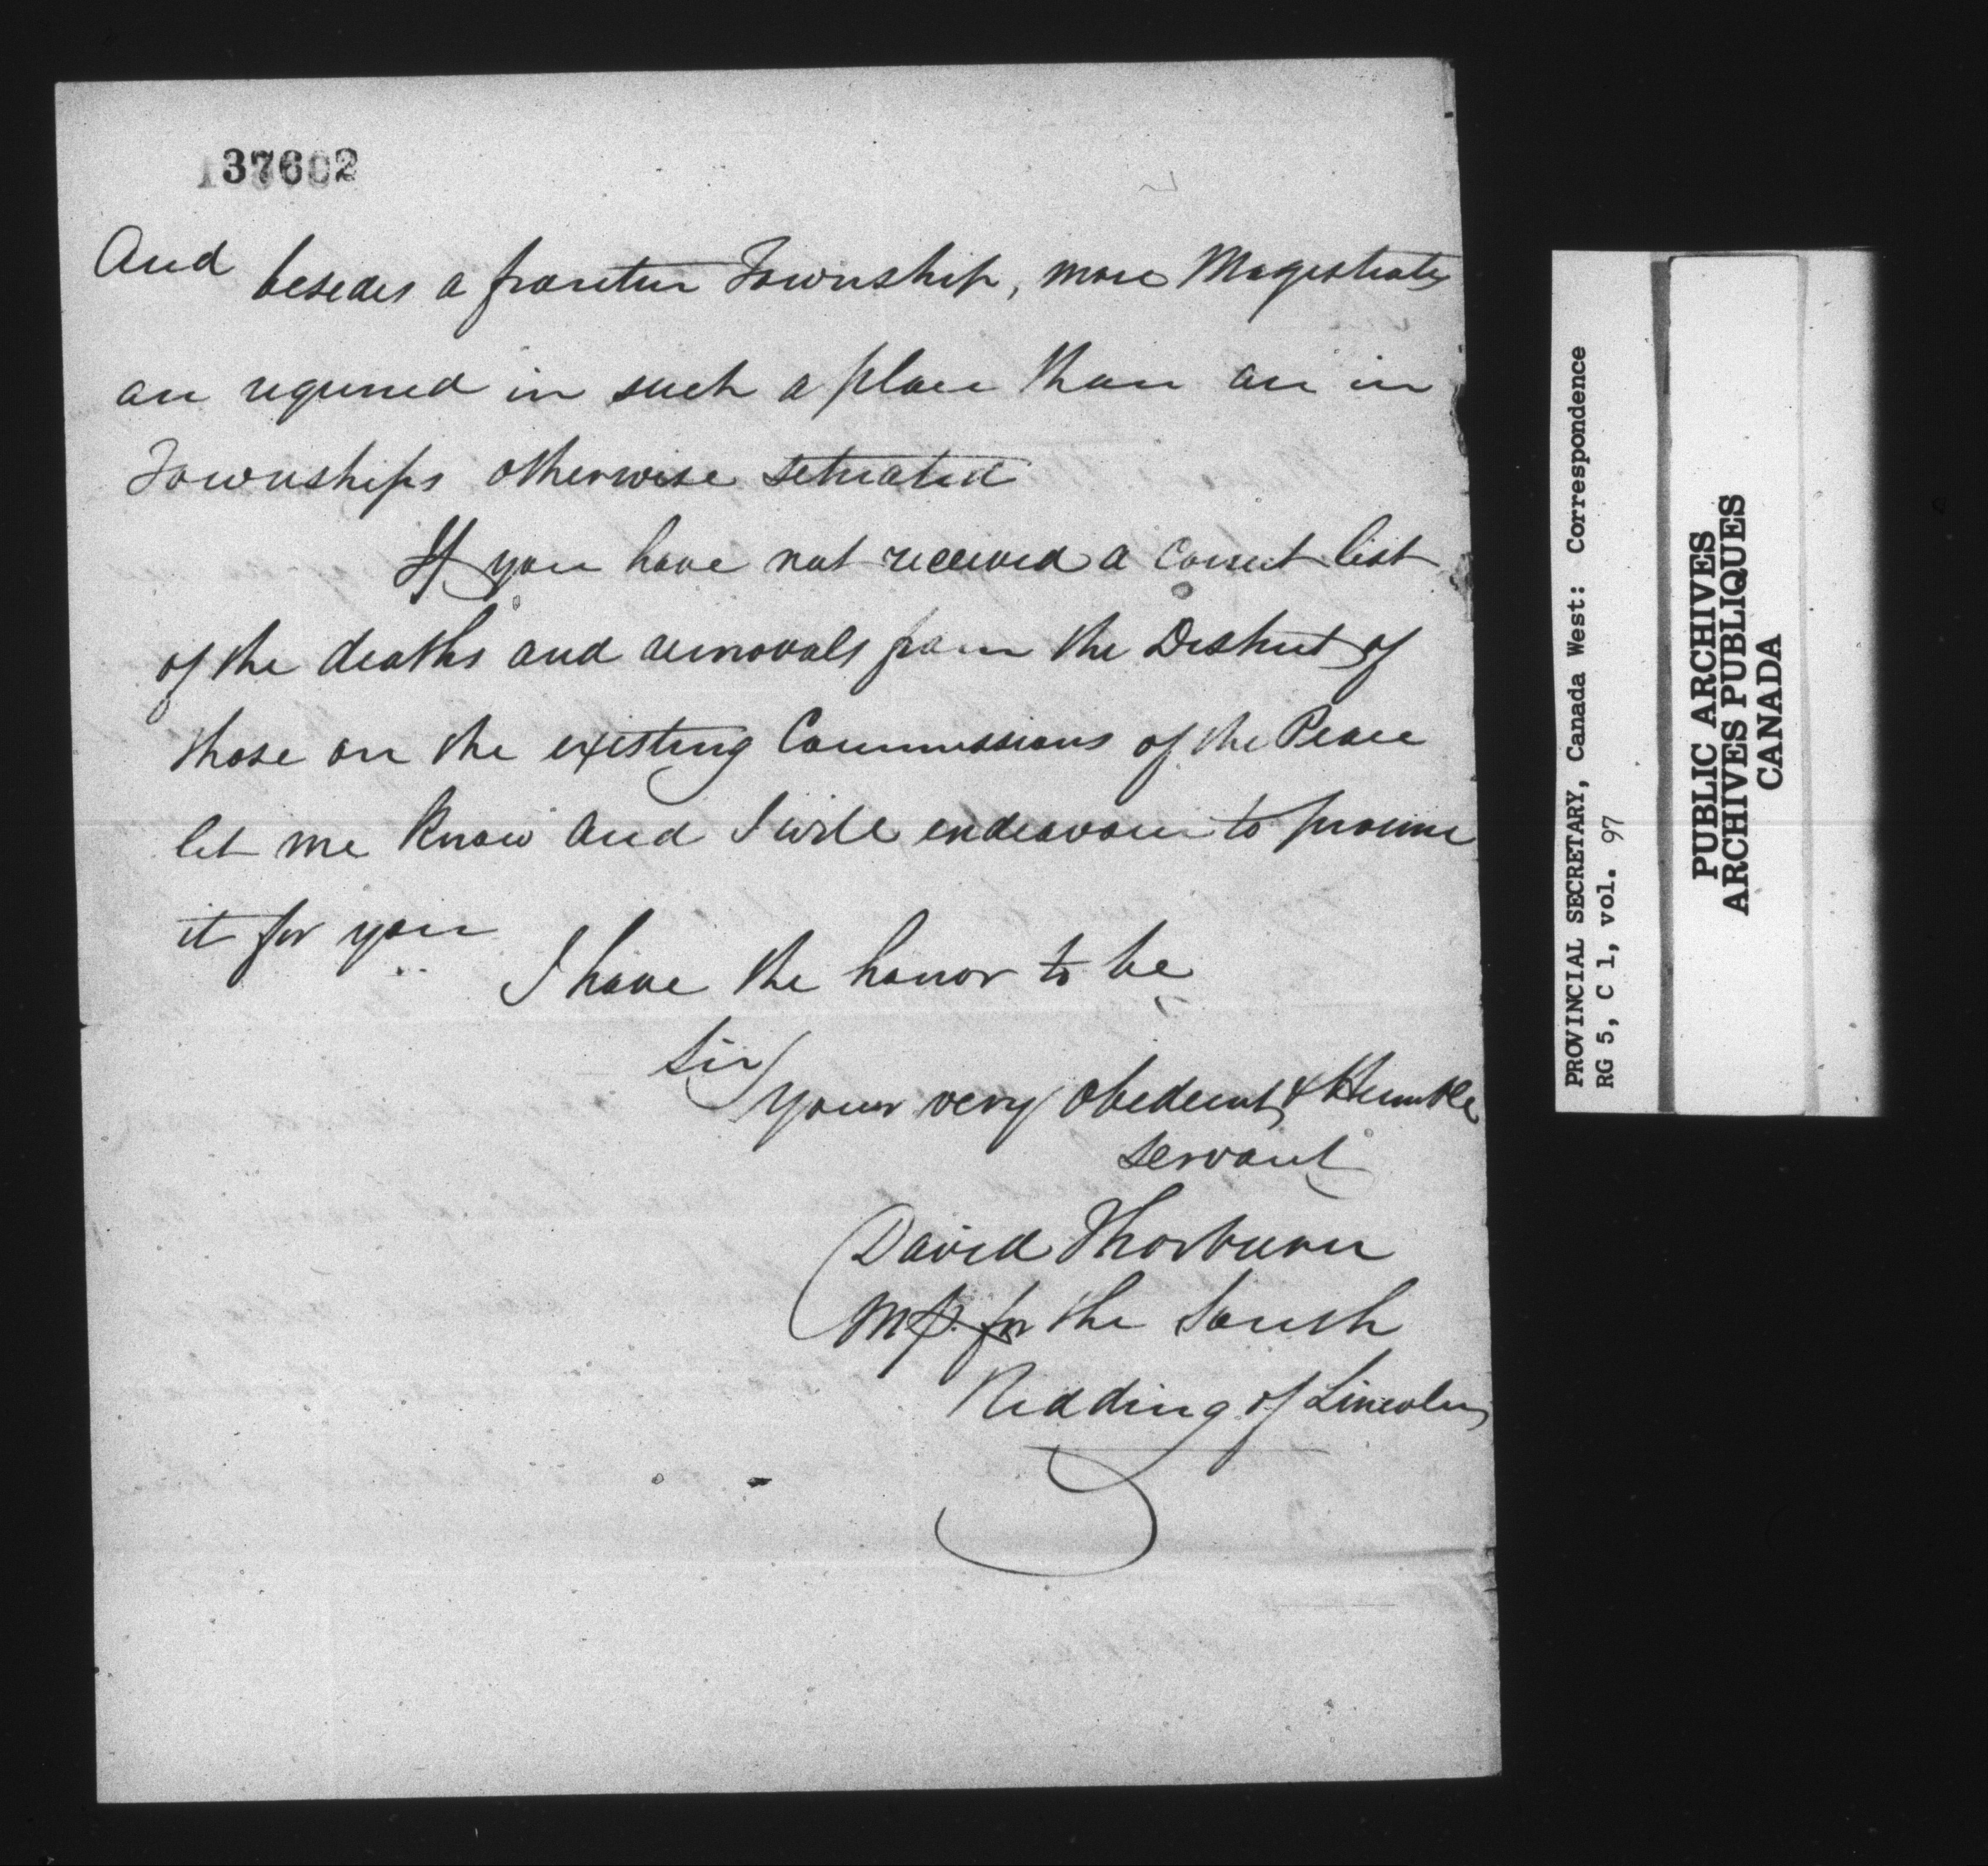 137602
And besides a frontier Township, more Magistrates
are required in such a place than are in
Townships otherwise setuated
If you have not received a correct list
of the deaths and removals from the District of
those on the existing Commissions of the Peace
let me know and I will endeavour to procure
it for you
I have the honor to be
Sir
your very obedient & Humble
servant
David Thorburn
MP. for the South
Ridding of Lincoln
PROVINCIAL SECRETARY, Canada West: Correspondence
RG 5, C 1, vol. 97
PUBLIC ARCHIVES
ARCHIVES PUBLIQUES
CANADA